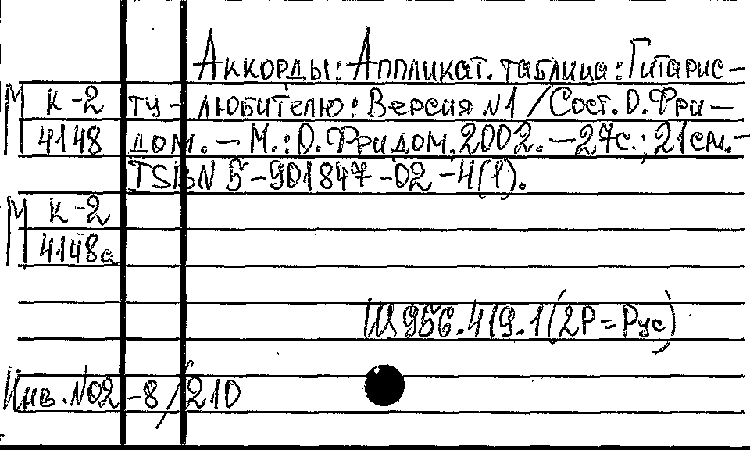 Аккорды: Аппликат. таблица: Гитарис-
М К-2 ту-любителю: Версия №1 / Сост. О. Фри-
4148 дом. - М.: О. Фридом, 2002. - 27с.; 21см. -
ISBN 5-901847-02-4(1).
М К-2
4148а
Щ 956.419.1(2Р=Рус)
Инв. №02-8/210